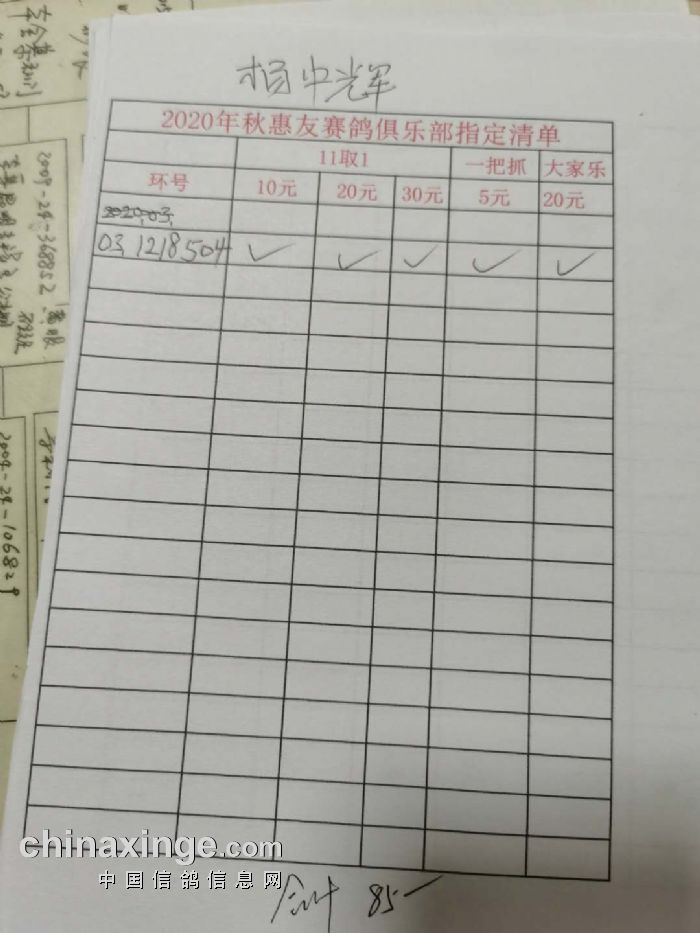 杨中光军
2020年秋惠友赛鸽俱乐部指定清单
11取1 一把抓 大家乐
环号 10元 20元 30元 5元 20元
2020.03.
03.1218504 ✓ ✓ ✓ ✓ ✓
合计 85一
chinaxinge.com
中国信鸽信息网
2009-24-368852
2009-24-106829